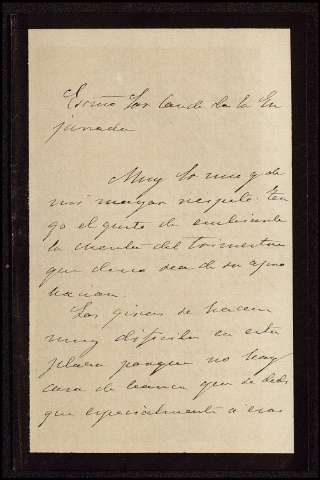 Excmo Sor Conde de la En
jarada
Muy Sr mio y de
mi mayor respeto: ten
go el gusto de embiarle
la cuenta del trimestre
que deseo sea de su apro
bacion.
Los giros se hacen
muy dificiles en esta
plaza porque no hay
casa de banca que se dedi
que especialmente á esas